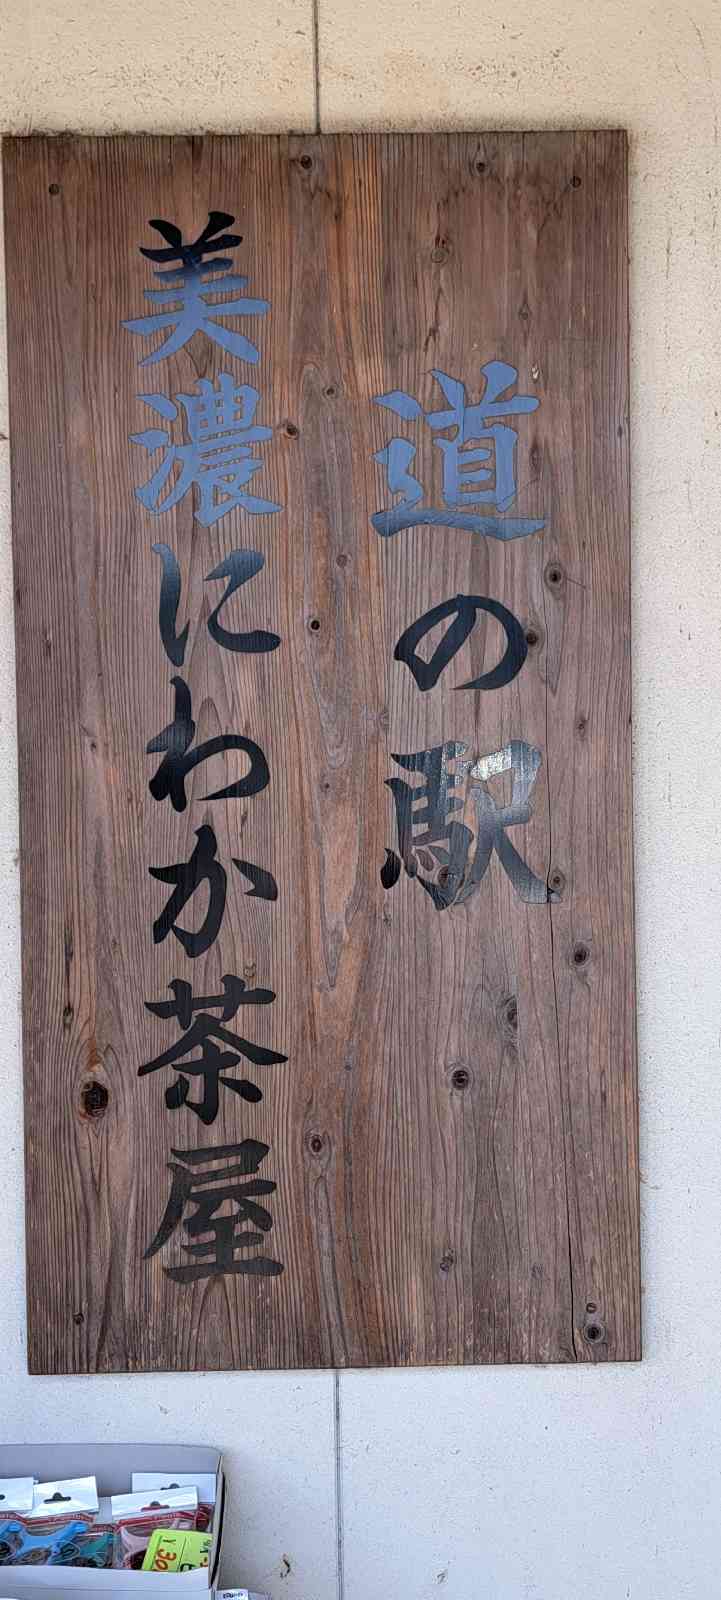 道の駅
美濃にわか茶屋